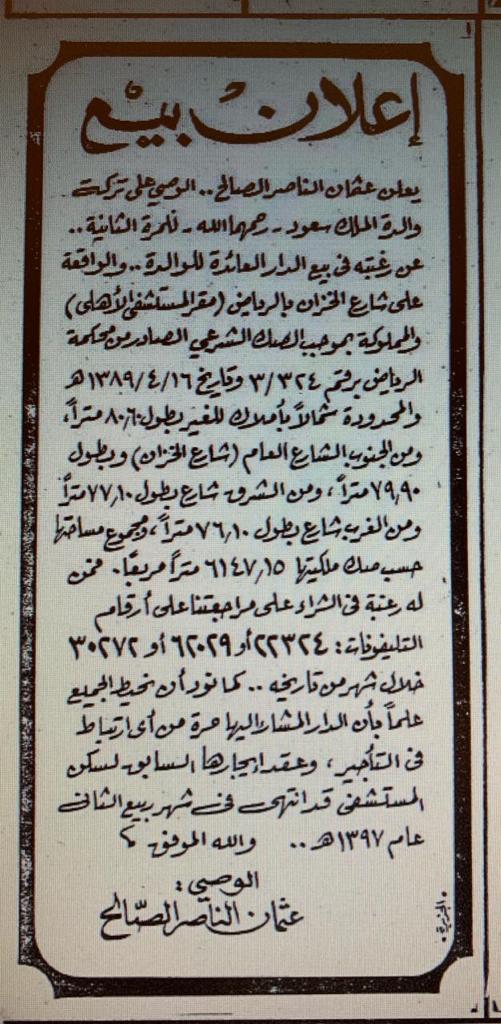 إعلان بيع
يعلن عثمان الناصر الصالح .. الوصي على تركة
والدة الملك سعود - رحمهما الله - للمرة الثانية ..
عن رغبته في بيع الدار العائدة للوالدة .. والواقعة
على شارع الخزان بالرياض (مقر المستشفى الأهلى)
والمملوكة بموجب الصك الشرعي الصادر من محكمة
الرياض برقم ٣/٣٢٤ وتاريخ ١٣٨٩/٤/١٦هـ
والمحدودة شمالاً بأملاك للغير بطول ٨٠,٦ متراً،
ومن الجنوب الشارع العام (شارع الخزان) وبطول
٧٩,٩٠ متراً، ومن الشرق شارع بطول ٧٧,١٠ متراً
ومن الغرب شارع بطول ٧٦,١٠ متراً، ومجموع مساحتها
حسب صك ملكيتها ٦١٤٧,١٥ متراً مربعاً. فمن
له رغبة في الشراء على مراجعتنا على أرقام
التليفونات: ٢٢٣٢٤ أو ٦٢٠٢٩ أو ٣٠٢٧٢
خلال شهر من تاريخه .. كما نود أن نحيط الجميع
علماً بأن الدار المشار اليها حرة من أى ارتباط
في التأجير، وعقد إيجارها السابق لسكن
المستشفى قد انتهى في شهر ربيع الثاني
عام ١٣٩٧هـ .. والله الموفق
الوصي:
عثمان الناصر الصّالح
• الجزيرة •